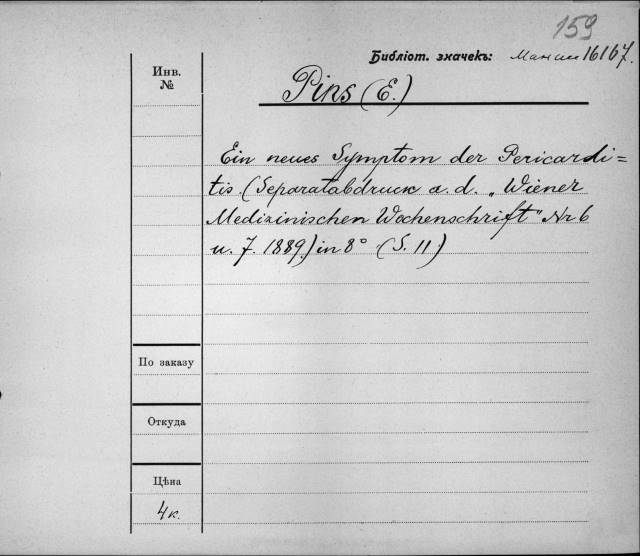 159
Библіот. значекъ: 16167.
Инв.
№
Pins (E.)
Ein neues Symptom der Pericardi=
tis. (Separatabdruck a. d. „Wiener
Medizinischen Wochenschrift" Nr 6
u. 7. 1889.) in 8° (S. 11)
По заказу
Откуда
Цѣна
4 к.